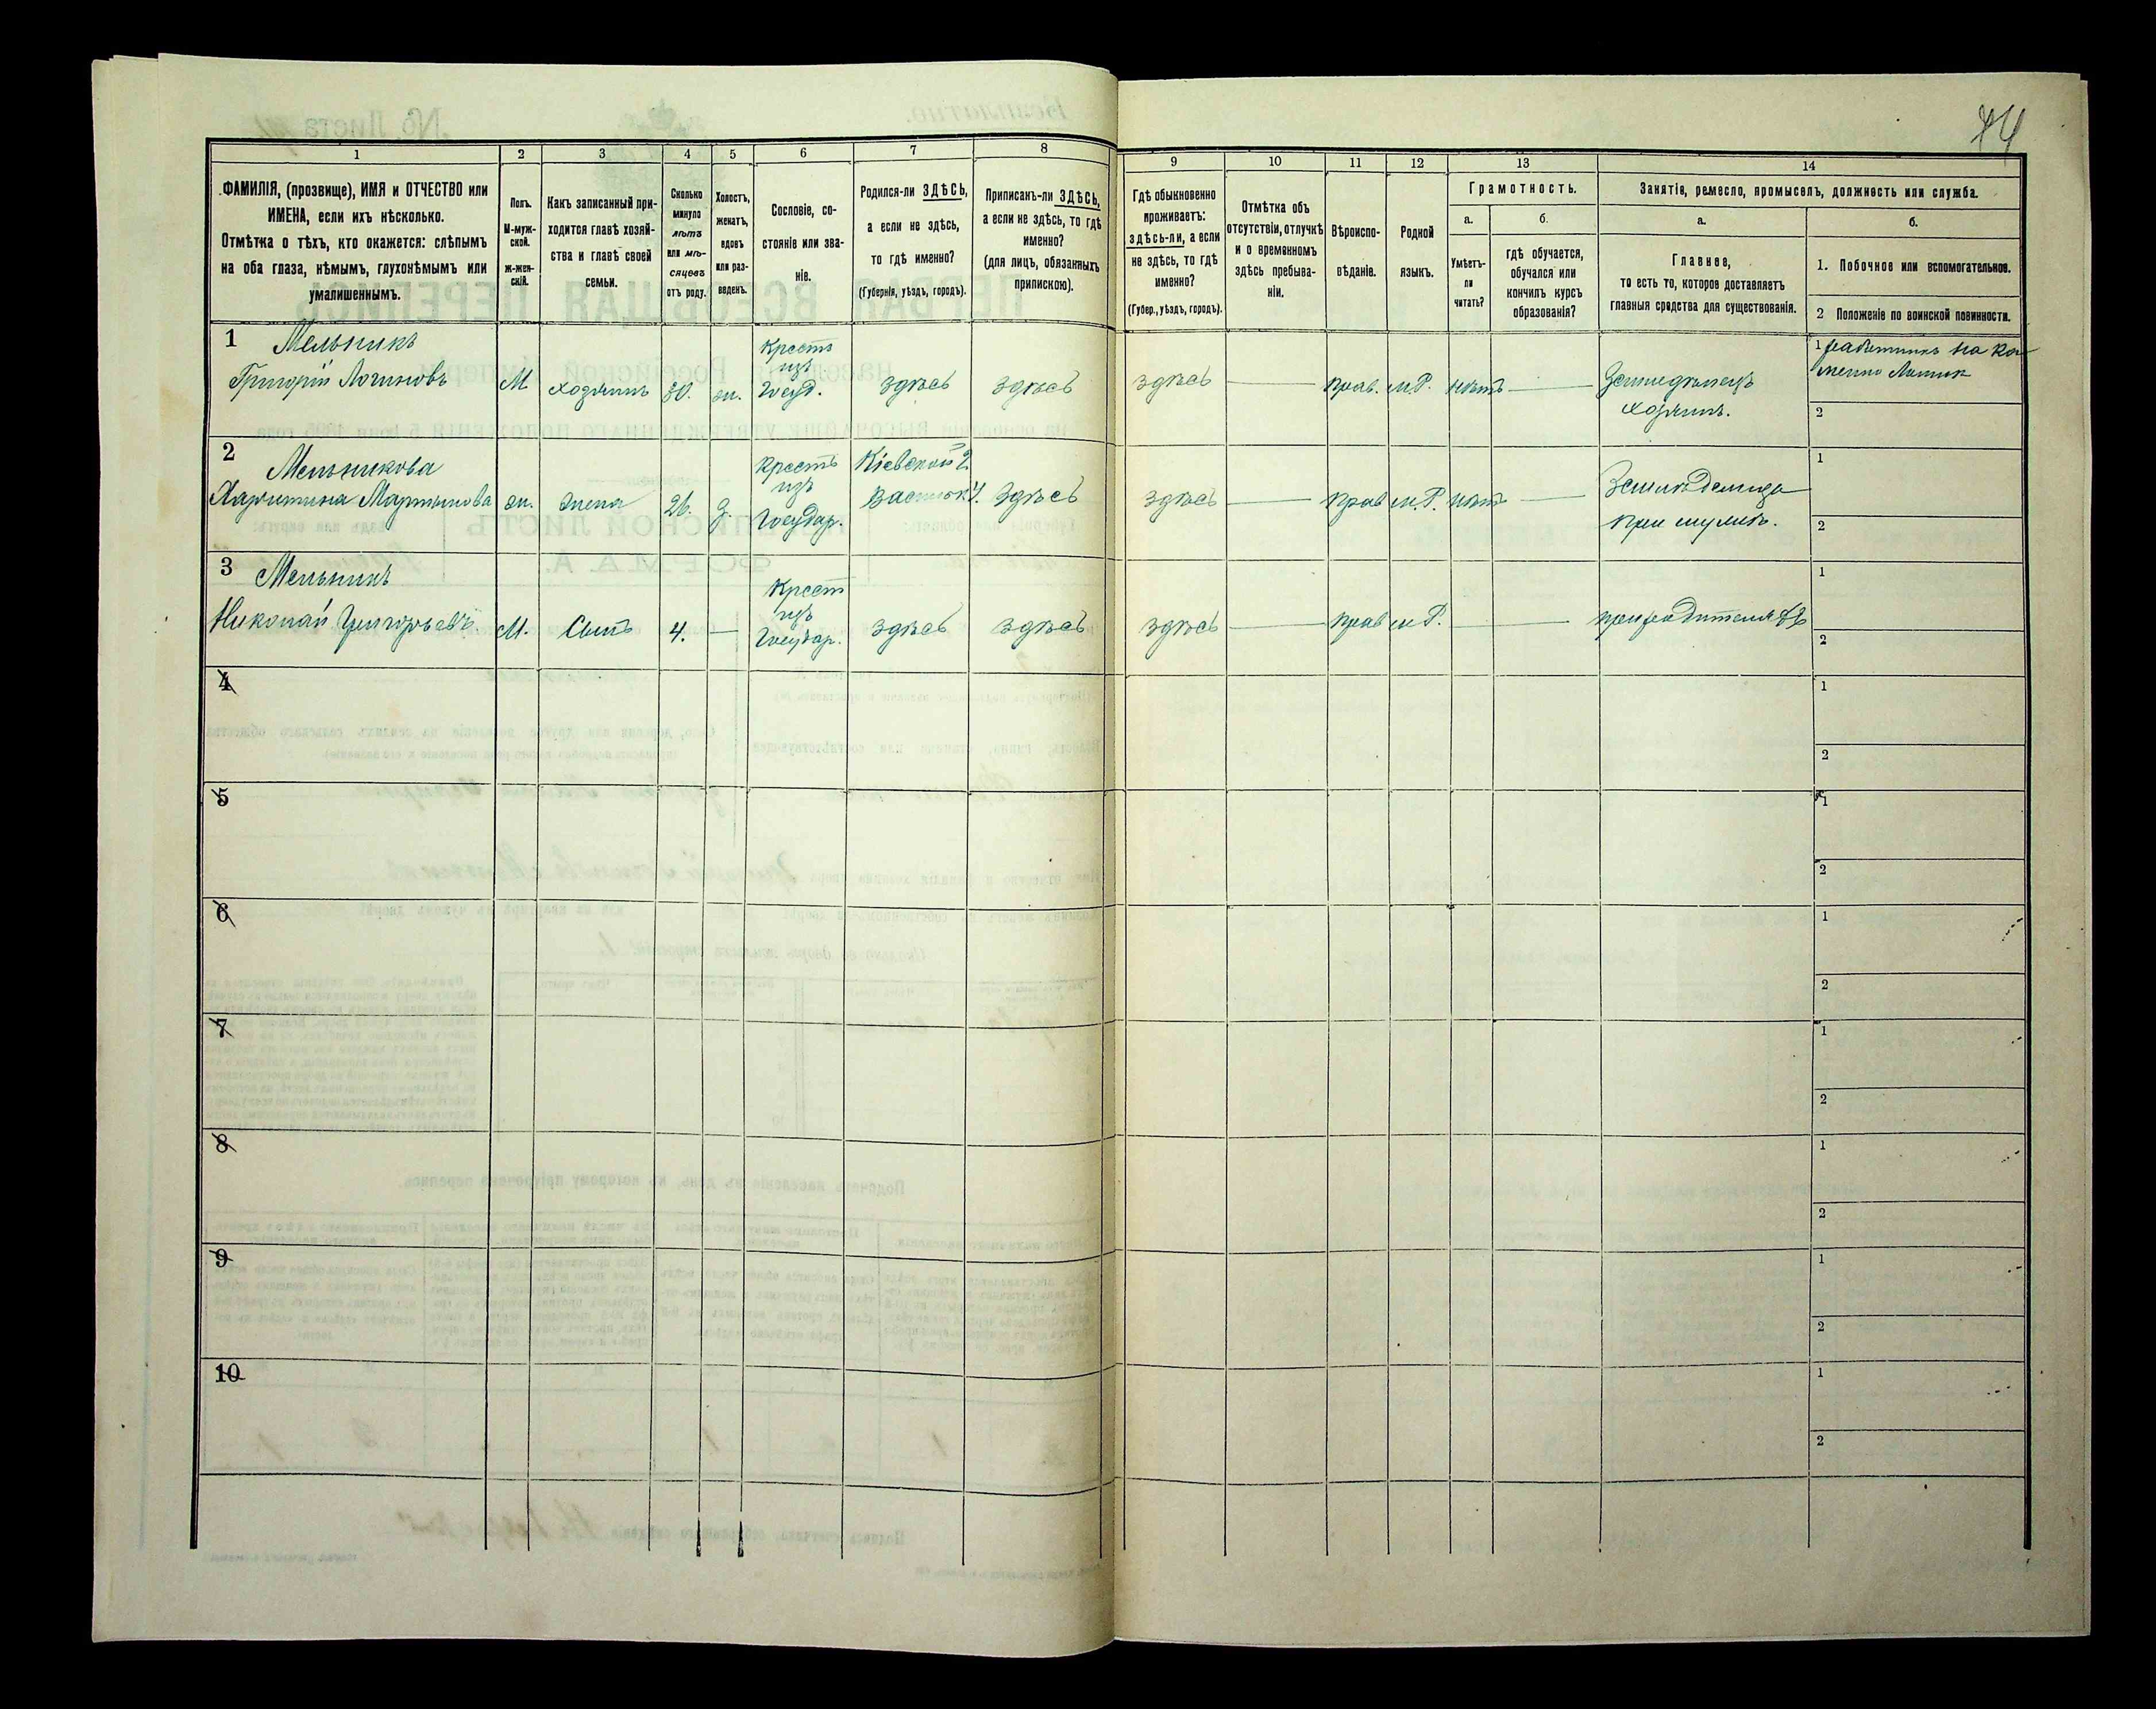 44
1 2 3 4 5 6 7 8 9 10 11 12 13 14
ФАМИЛІЯ, (прозвище), ИМЯ и ОТЧЕСТВО или
ИМЕНА, если ихъ нѣсколько.
Отмѣтка о тѣхъ, кто окажется: слѣпымъ
на оба глаза, нѣмымъ, глухонѣмымъ или
умалишеннымъ.
Полъ.
М-муж-
ской.
Ж-жен-
скій.
Какъ записанный при-
ходится главѣ хозяй-
ства и главѣ своей
семьи.
Сколько
минуло
лѣтъ
или мѣ-
сяцевъ
отъ роду.
Холостъ,
женатъ,
вдовъ
или раз-
веденъ.
Сословіе, со-
стояніе или зва-
ніе.
Родился-ли ЗДѢСЬ,
а если не здѣсь,
то гдѣ именно?
(Губернія, уѣздъ, городъ).
Приписанъ-ли ЗДѢСЬ,
а если не здѣсь, то гдѣ
именно?
(для лицъ, обязанныхъ
припискою).
Гдѣ обыкновенно
проживаетъ:
здѣсь-ли, а если
не здѣсь, то гдѣ
именно?
(Губер., уѣздъ, городъ).
Отмѣтка объ
отсутствіи, отлучкѣ
и о временномъ
здѣсь пребыва-
ніи.
Вѣроиспо-
вѣданіе.
Родной
языкъ.
Грамотность.
а.
Умѣетъ-
ли
читать?
б.
гдѣ обучается,
обучался или
кончилъ курсъ
образованія?
Занятіе, ремесло, промыселъ, должность или служба.
а.
Главное,
то есть то, которое доставляетъ
главныя средства для существованія.
б.
1. Побочное или вспомогательное.
2 Положеніе по воинской повинности.
1 Мельникъ
Григорій Логиновъ
М
хозяинъ
30.
ж.
Крест
изъ
Госуд.
здѣсь
здѣсь
здѣсь
прав.
м.Р.
нѣтъ
Земледѣлецъ
хозяинъ.
1 работникъ на ка-
2
2 Мельникова
Харитина Мартынова
ж.
жена
26.
з.
Крест
изъ
Государ.
Кіевской г.
Васильк. у.
здѣсь
здѣсь
прав
м.Р.
нѣтъ
при мужѣ.
1
2
3 Мельникъ
Николай Григорьевъ.
М.
Сынъ
4.
Крест
изъ
Государ.
здѣсь
здѣсь
здѣсь
прав
м.Р.
при родителяхъ
1
2
4
1
2
5
1
2
6
1
2
7
1
2
8
1
2
9
1
2
10
1
2